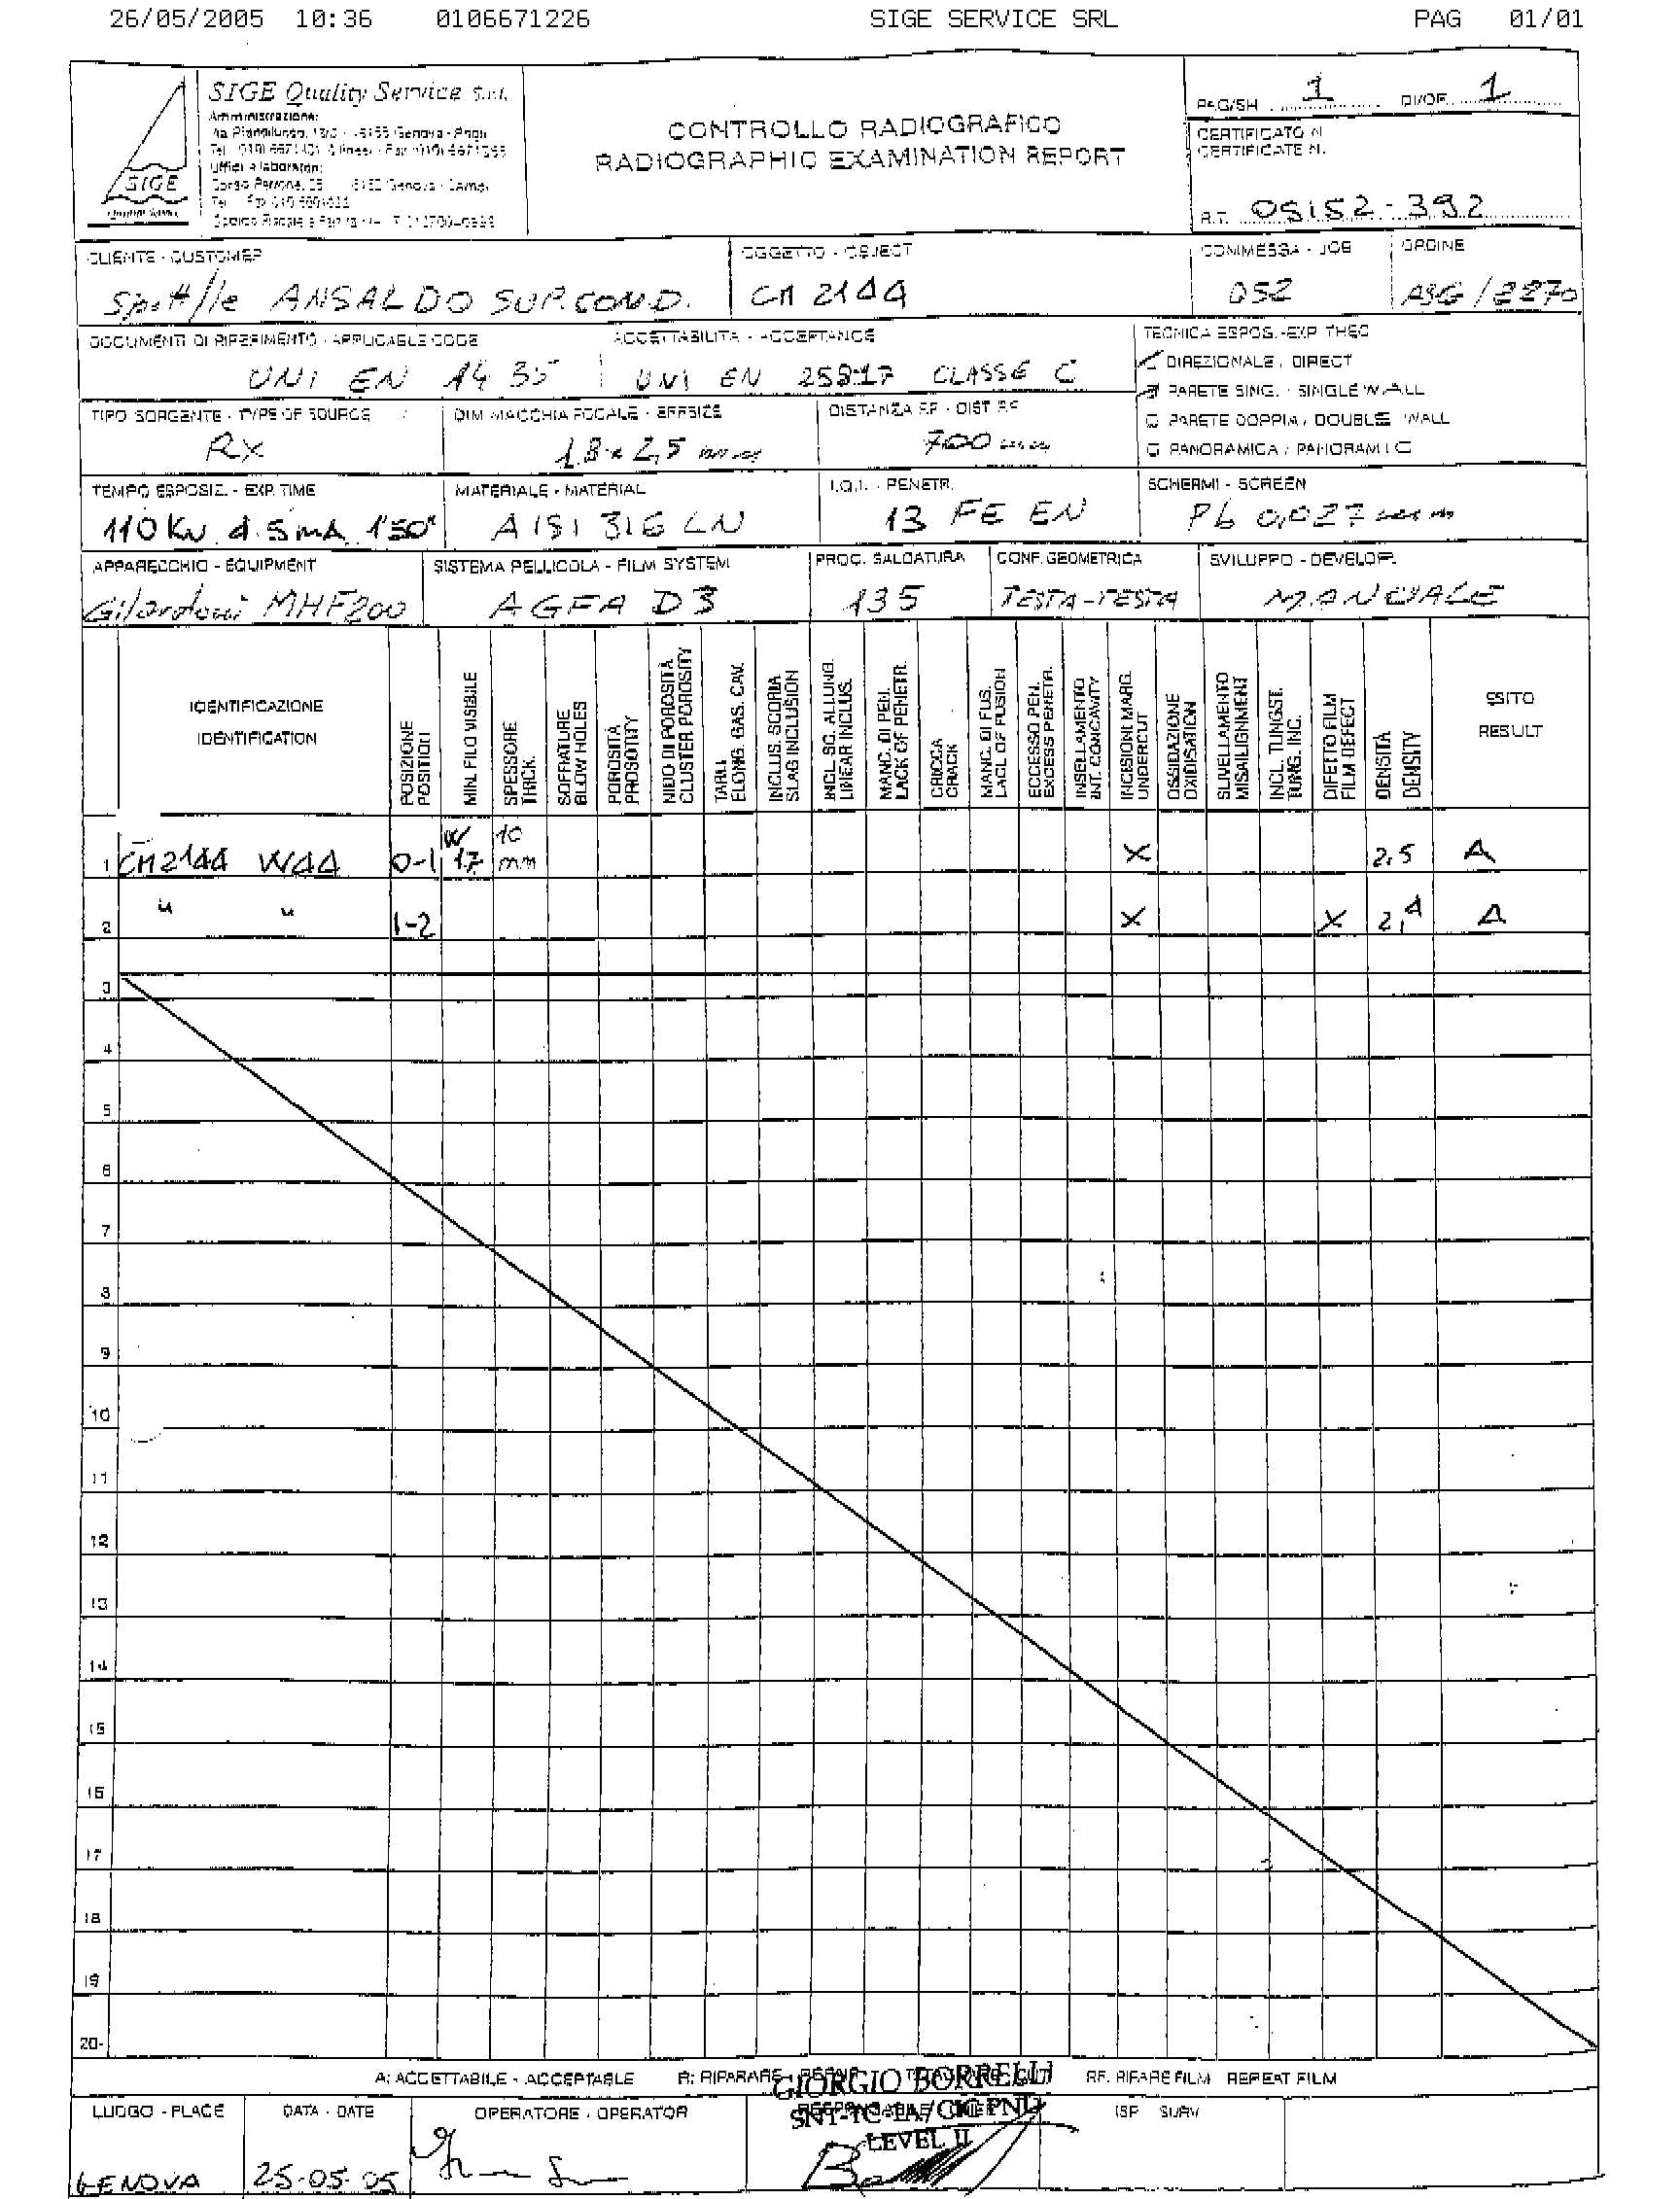 26/05/2005 10:36 0106671226 SIGE SERVICE SRL PAG 01/01
SIGE Quality Service s.r.l.
Amministrazione:
Uffici e laboratori:
SIGE
CONTROLLO RADIOGRAFICO
RADIOGRAPHIC EXAMINATION REPORT
PAG/SH 1 DI/OF 1
CERTIFICATO N.
CERTIFICATE N.
R.T. 05152-392
CLIENTE - CUSTOMER
Spett/le ANSALDO SUP.COND.
OGGETTO - OBJECT
CM 2144
COMMESSA - JOB
052
ORDINE
ASG/2270
DOCUMENTI DI RIFERIMENTO - APPLICABLE CODE
UNI EN 1435
ACCETTABILITA - ACCEPTANCE
UNI EN 25817 CLASSE C
TECNICA ESPOS.-EXP. THEC
DIREZIONALE / DIRECT
PARETE SING. / SINGLE WALL
PARETE DOPPIA / DOUBLE WALL
PANORAMICA / PANORAMIC
TIPO SORGENTE - TYPE OF SOURCE
RX
DIM. MACCHIA FOCALE - EFFSIZE
1.8 x 2,5 mm
DISTANZA F.F - DIST F.F
700 mm
TEMPO ESPOSIZ. - EXP. TIME
110 KV 4.5 mA 1'50"
MATERIALE - MATERIAL
AISI 316 LN
I.Q.I. - PENETR.
13 FE EN
SCHERMI - SCREEN
Pb 0,027 mm
APPARECCHIO - EQUIPMENT
Gilardoni MHF200
SISTEMA PELLICOLA - FILM SYSTEM
AGFA D3
PROC. SALDATURA
135
CONF. GEOMETRICA
TESTA-TESTA
SVILUPPO - DEVELOP.
MANUALE
IDENTIFICAZIONE
IDENTIFICATION
POSIZIONE
POSITION
MIN. FILO VISIBILE
SPESSORE
THICK.
SOFFIATURE
BLOW HOLES
POROSITÀ
PROSOTIY
NIDO DI POROSITÀ
CLUSTER POROSITY
TARLI
ELONG. GAS. CAV.
INCLUS. SCORIA
SLAG INCLUSION
INCL. SC. ALLUNG.
LINEAR INCLUS.
MANC. DI PEN.
LACK OF PENETR.
CRICCA
CRACK
MANC. DI FUS.
LACL OF FUSION
ECCESSO PEN.
EXCESS PENETR.
INSELLAMENTO
INT. CONCAVITY
INCISIONI MARG.
UNDERCUT
OSSIDAZIONE
OXIDISATION
SLIVELLAMENTO
MISALIGNMENT
INCL. TUNGST.
TUNG. INC.
DIFETTO FILM
FILM DEFECT
DENSITÀ
DENSITY
ESITO
RESULT
1 CM2144 W44 0-1 W 17 10 mm X 2,5 A
2 " " 1-2 X X 2,4 A
3
4
5
6
7
8
9
10
11
12
13
14
15
16
17
18
19
20
A: ACCETTABILE - ACCEPTABLE R: RIPARARE - REPAIR RF. RIFARE FILM REPEAT FILM
GIORGIO BORRELLI
SNT-TC-1A/CICPND
LEVEL II
LUOGO - PLACE
GENOVA
DATA - DATE
25-05-05
OPERATORE - OPERATOR
ISP SURV